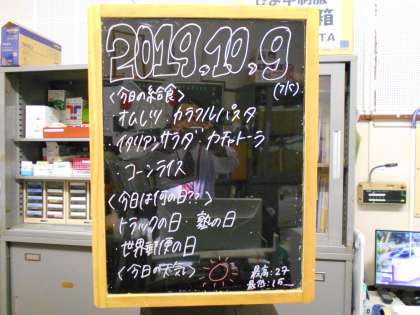 2019.10.9
<今日の給食> (763)
オムレツ・カラフルパスタ
・イタリアンサラダ カチャトーラ
・コーンライス
<今日は何の日??>
トラックの日・塾の日
世界郵便の日
<今日の天気>
最高:27
最低:15
箱
TA